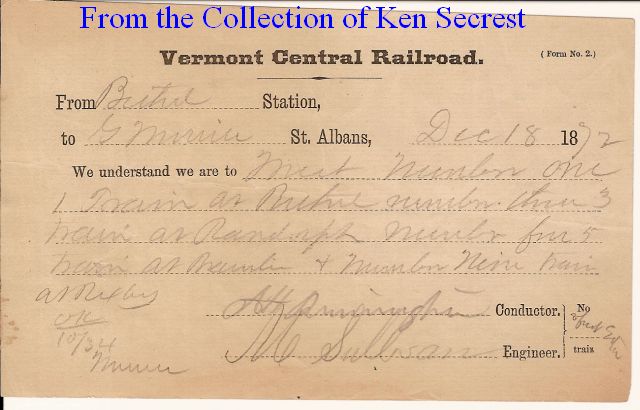 From the Collection of Ken Secrest
Vermont Central Railroad.
(Form No. 2.)
From Bethel Station,
to G Merrill St. Albans, Dec 18 1872
We understand we are to Meet Number one
1 Train at Bethel number three 3
train at Randolph Number five 5
train at & Number Nine train
at Roxbury
OK
10/34
Merrill
Conductor.
M Sullivan Engineer.
No
train